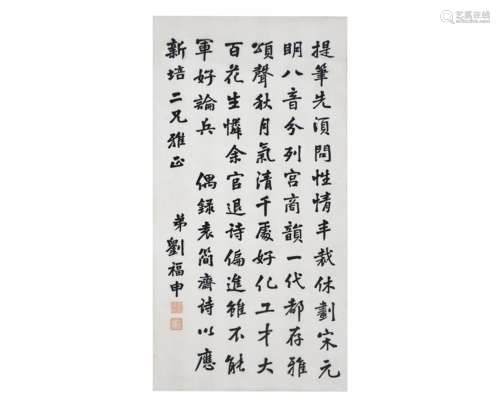 提筆先須問性情丰裁休劃宋元
明八音分列宮商韻一代都存雅
頌聲秋月氣清千處好化工才大
百花生憐余官退诗偏進雖不能
軍好論兵 偶錄袁簡齋诗以應
新培二兄雅正
弟劉福申
艺狐在线